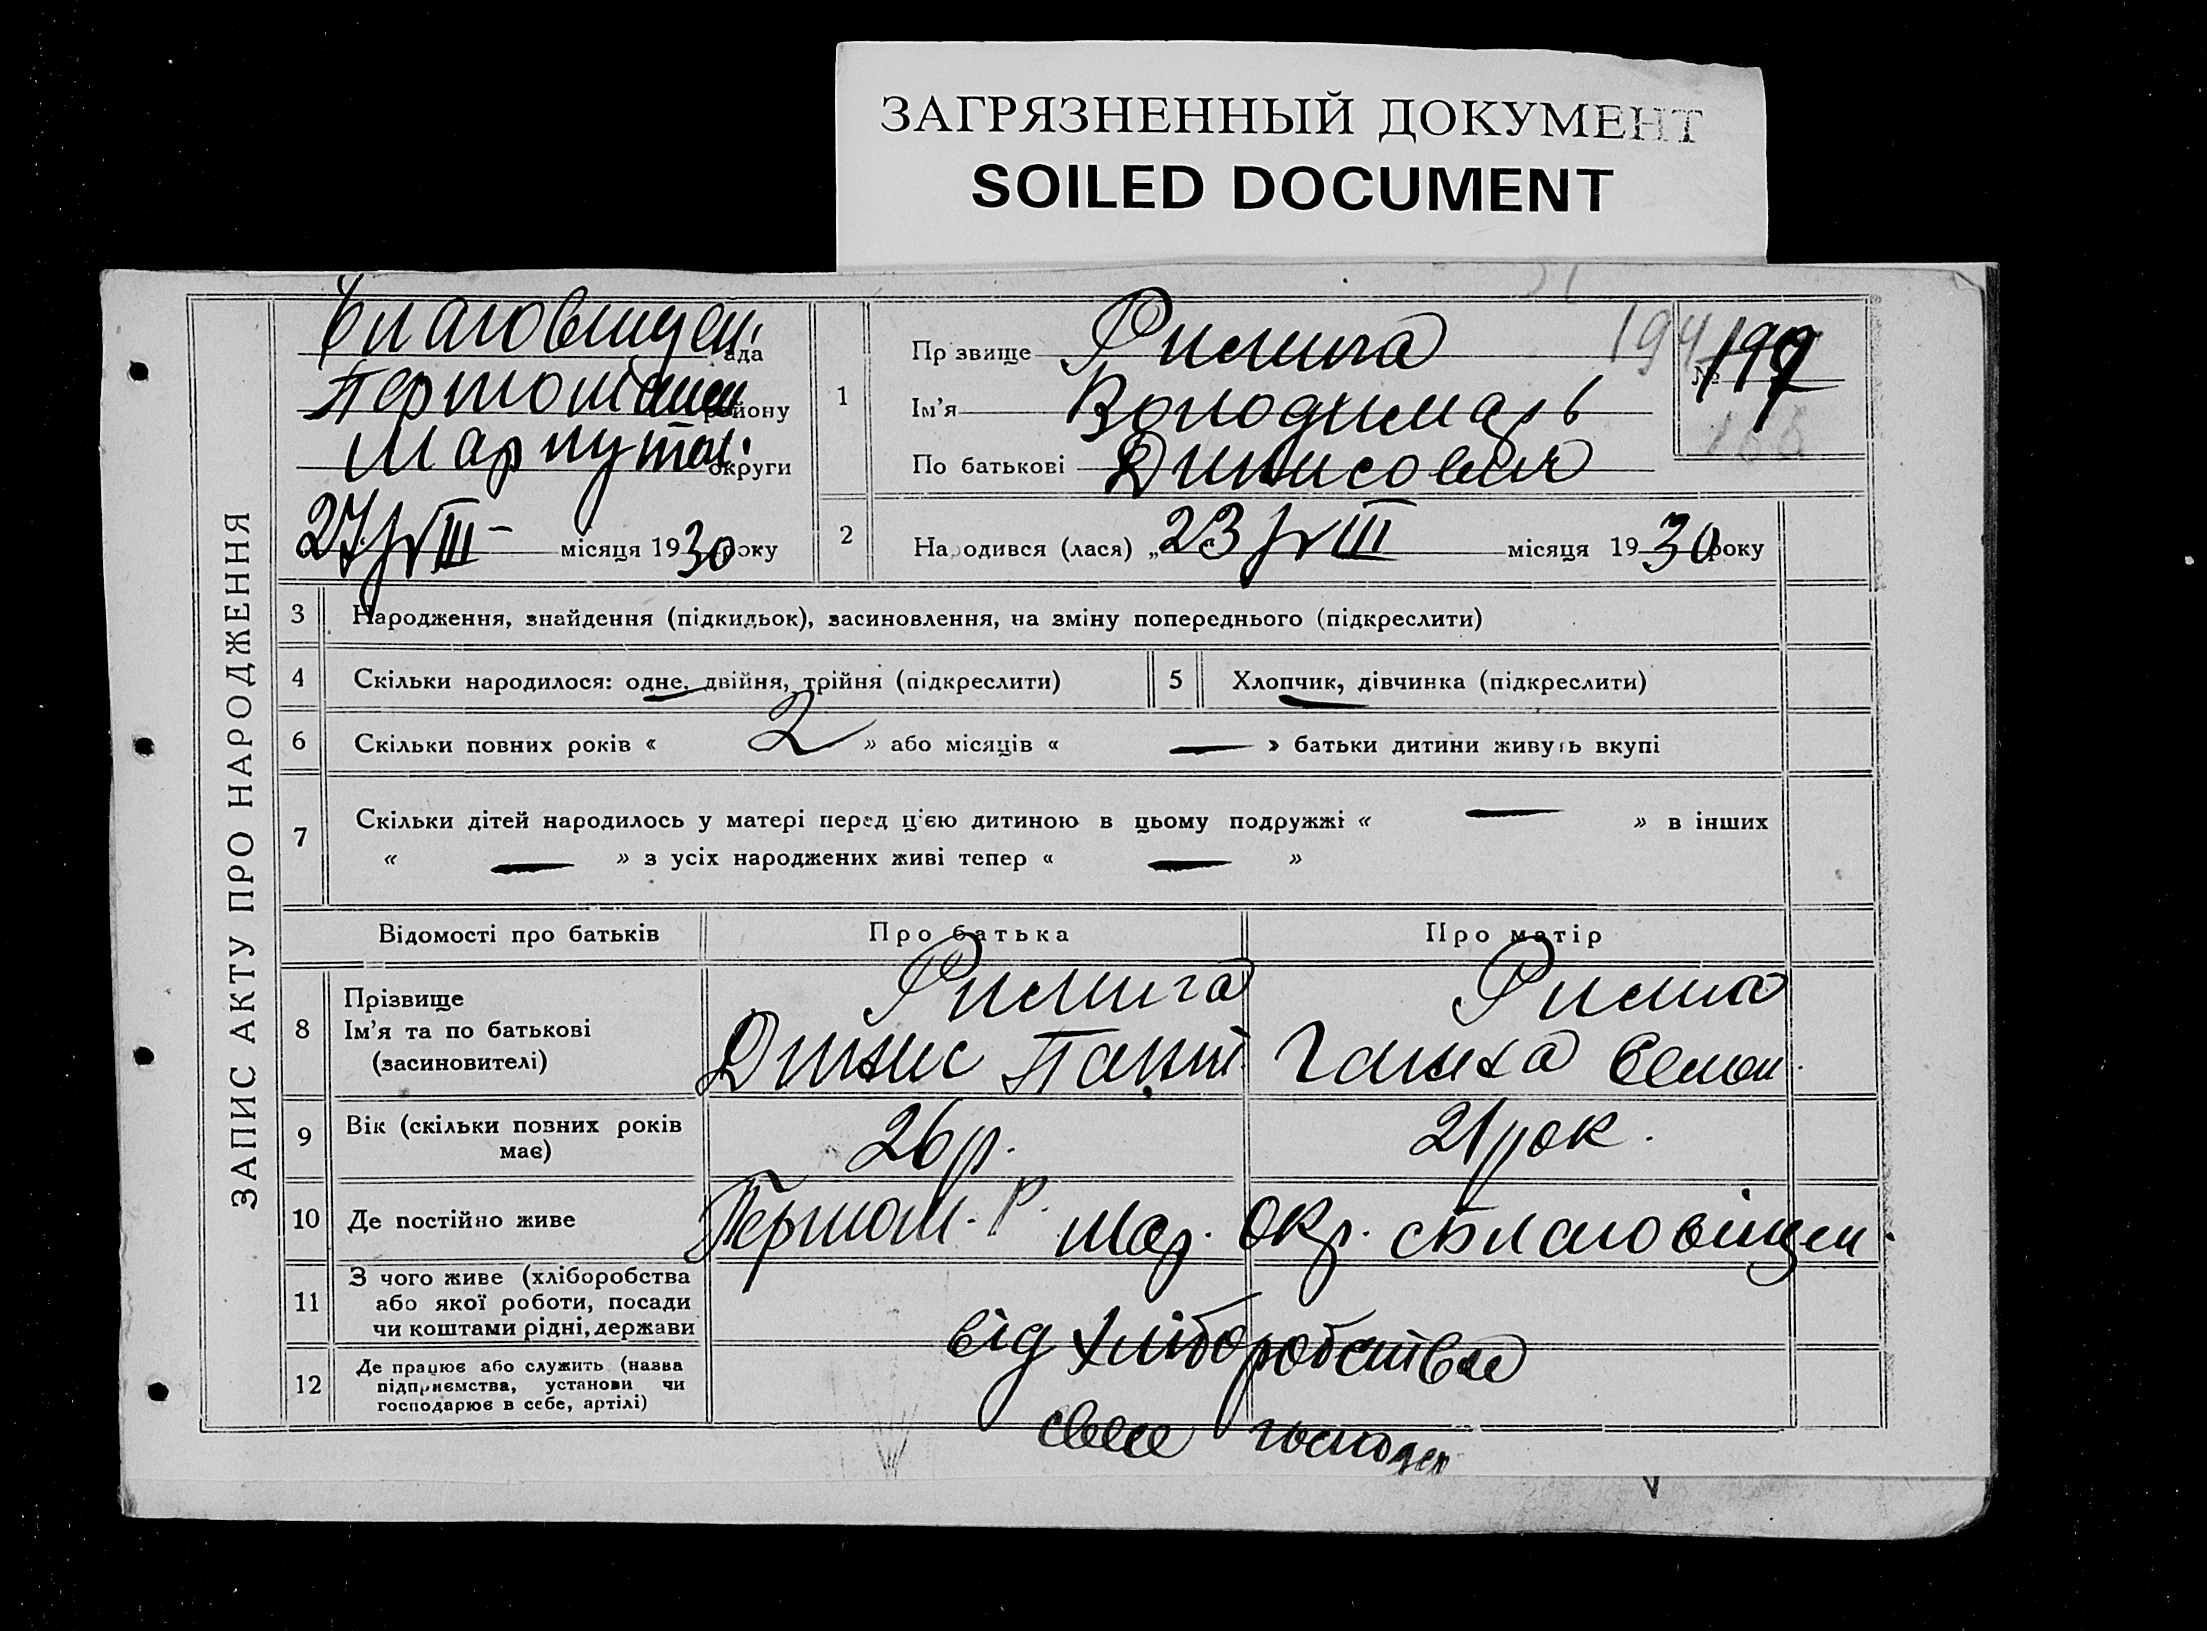 ЗАГРЯЗНЕННЫЙ ДОКУМЕНТ
SOILED DOCUMENT
ЗАПИС АКТУ ПРО НАРОДЖЕННЯ
Благовіщен. ада
району
округи
27/VIII місяця 1930 року
1
Пр звище Римига
Ім'я Володимарь
По батькові Динисович
194
№ 197
2
Народився (лася) „ 23/VIII місяця 1930 року
3 Народження, знайдення (підкидьок), засиновлення, на зміну попереднього (підкреслити)
4 Скільки народилося: одне, двійня, трійня (підкреслити)
5 Хлопчик, дівчинка (підкреслити)
6 Скільки повних років « 2 » або місяців « — » батьки дитини живуть вкупі
7 Скільки дітей народилось у матері перед ц'єю дитиною в цьому подружжі « — » в інших
« — » з усіх народжених живі тепер « — »
Відомості про батьків Про батька Про матір
8 Прізвище
Ім'я та по батькові
(засиновителі)
Римига
Динис
Ганна Семен.
9 Вік (скільки повних років
має)
26 р.
21 рок.
10 Де постійно живе
Першом. Р. Мар. окр. с Благовіщен.
11 З чого живе (хліборобства
або якої роботи, посади
чи коштами рідні, держави
від хліборобства
12 Де працює або служить (назва
підприємства, установи чи
господарює в себе, артілі)
своє господар